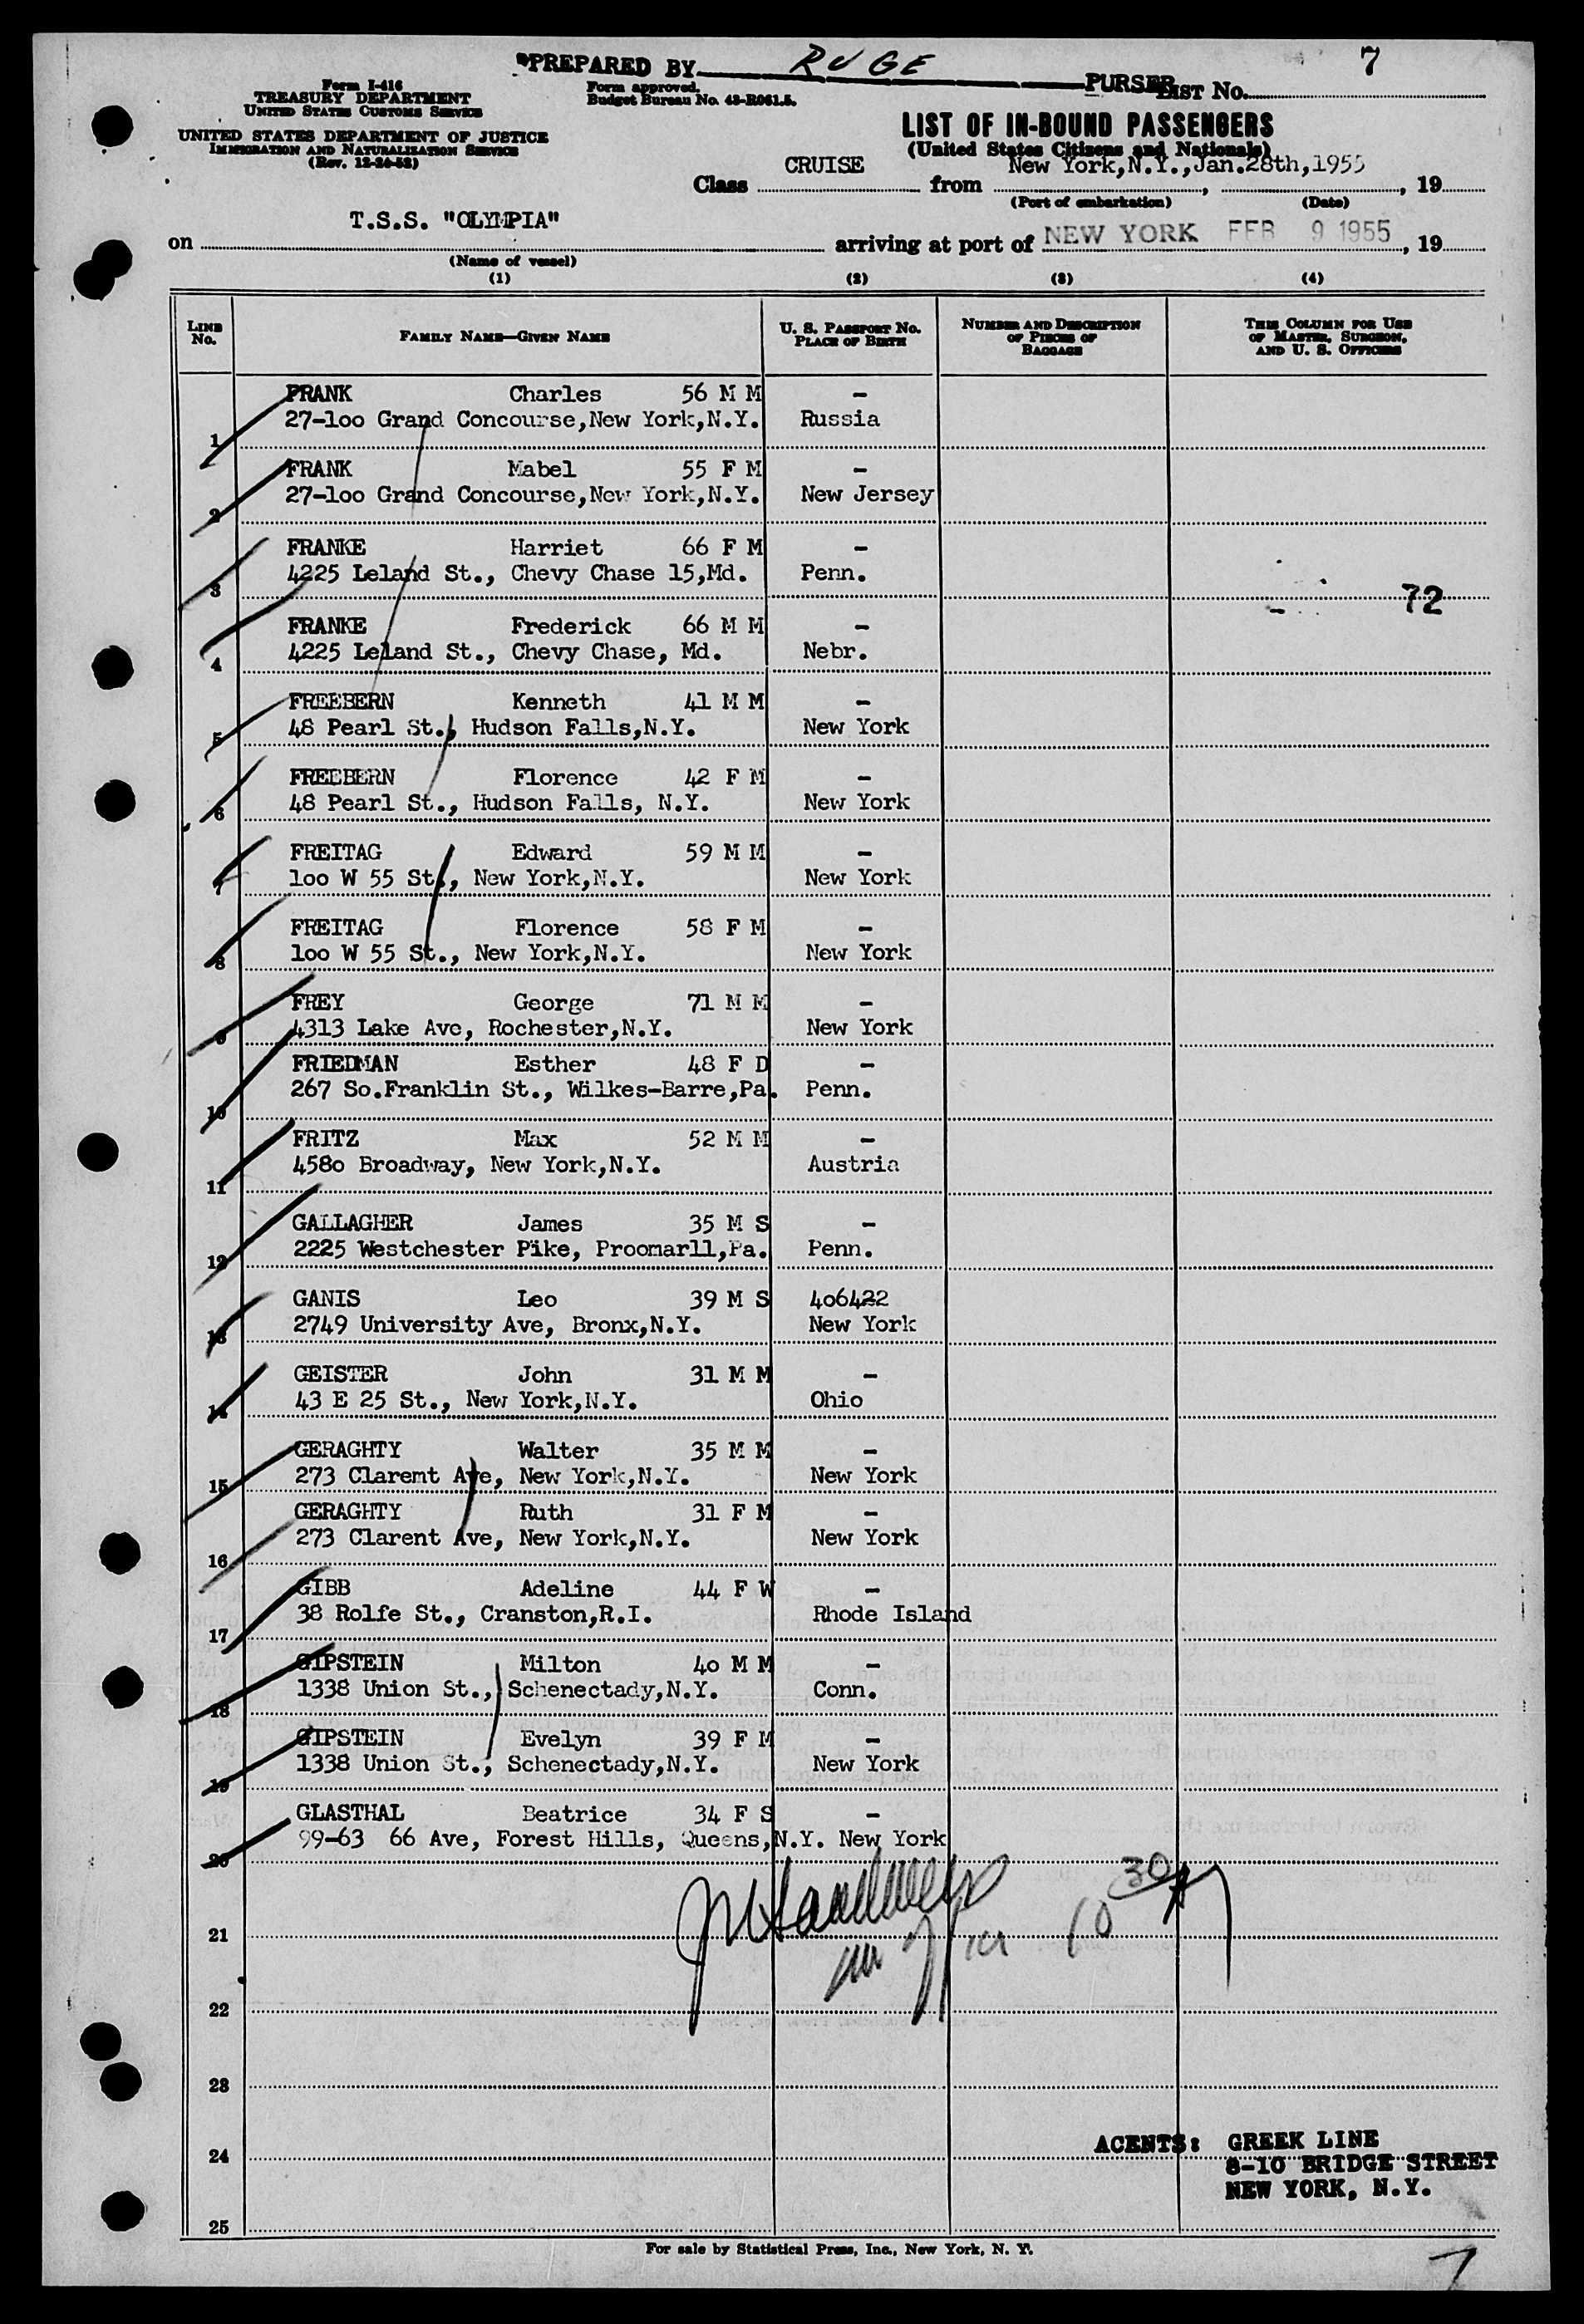 PREPARED BY RUGE PURSER
7
Form I-416
TREASURY DEPARTMENT
UNITED STATES CUSTOMS SERVICE
UNITED STATES DEPARTMENT OF JUSTICE
IMMIGRATION AND NATURALIZATION SERVICE
(Rev. 12-24-52)
Form approved.
Budget Bureau No. 43-R061.5.
LIST No.
LIST OF IN-BOUND PASSENGERS
(United States Citizens and Nationals)
Class CRUISE from New York,N.Y.,Jan.28th,1955, 19
(Port of embarkation) (Date)
on T.S.S. "OLYMPIA" arriving at port of NEW YORK FEB 9 1955, 19
(Name of vessel)
(1) (2) (3) (4)
LINE No. FAMILY NAME—GIVEN NAME U. S. PASSPORT NO. PLACE OF BIRTH NUMBER AND DESCRIPTION OF PIECES OF BAGGAGE THIS COLUMN FOR USE OF MASTER, SURGEON, AND U. S. OFFICERS
FRANK Charles 56 M M -
1 27-1oo Grand Concourse,New York,N.Y. Russia
FRANK Mabel 55 F M -
2 27-1oo Grand Concourse,New York,N.Y. New Jersey
FRANKE Harriet 66 F M -
3 4225 Leland St., Chevy Chase 15,Md. Penn.
72
FRANKE Frederick 66 M M -
4 4225 Leland St., Chevy Chase, Md. Nebr.
FREEBERN Kenneth 41 M M -
5 48 Pearl St., Hudson Falls,N.Y. New York
FREEBERN Florence 42 F M -
6 48 Pearl St., Hudson Falls, N.Y. New York
FREITAG Edward 59 M M -
7 1oo W 55 St., New York,N.Y. New York
FREITAG Florence 58 F M -
8 1oo W 55 St., New York,N.Y. New York
FREY George 71 M M -
9 4313 Lake Ave, Rochester,N.Y. New York
FRIEDMAN Esther 48 F D -
10 267 So.Franklin St., Wilkes-Barre,Pa. Penn.
FRITZ Max 52 M M -
11 458o Broadway, New York,N.Y. Austria
GALLAGHER James 35 M S -
12 2225 Westchester Pike, Proomarll,Pa. Penn.
GANIS Leo 39 M S 4o6422
13 2749 University Ave, Bronx,N.Y. New York
GEISTER John 31 M M -
14 43 E 25 St., New York,N.Y. Ohio
GERAGHTY Walter 35 M M -
15 273 Claremt Ave, New York,N.Y. New York
GERAGHTY Ruth 31 F M -
16 273 Clarent Ave, New York,N.Y. New York
GIBB Adeline 44 F W -
17 38 Rolfe St., Cranston,R.I. Rhode Island
GIPSTEIN Milton 4o M M -
18 1338 Union St., Schenectady,N.Y. Conn.
GIPSTEIN Evelyn 39 F M -
19 1338 Union St., Schenectady,N.Y. New York
GLASTHAL Beatrice 34 F S -
20 99-63 66 Ave, Forest Hills, Queens,N.Y. New York
10 30 A
21
22
23
24
25
AGENTS: GREEK LINE
8-10 BRIDGE STREET
NEW YORK, N.Y.
For sale by Statistical Press, Inc., New York, N. Y.
7